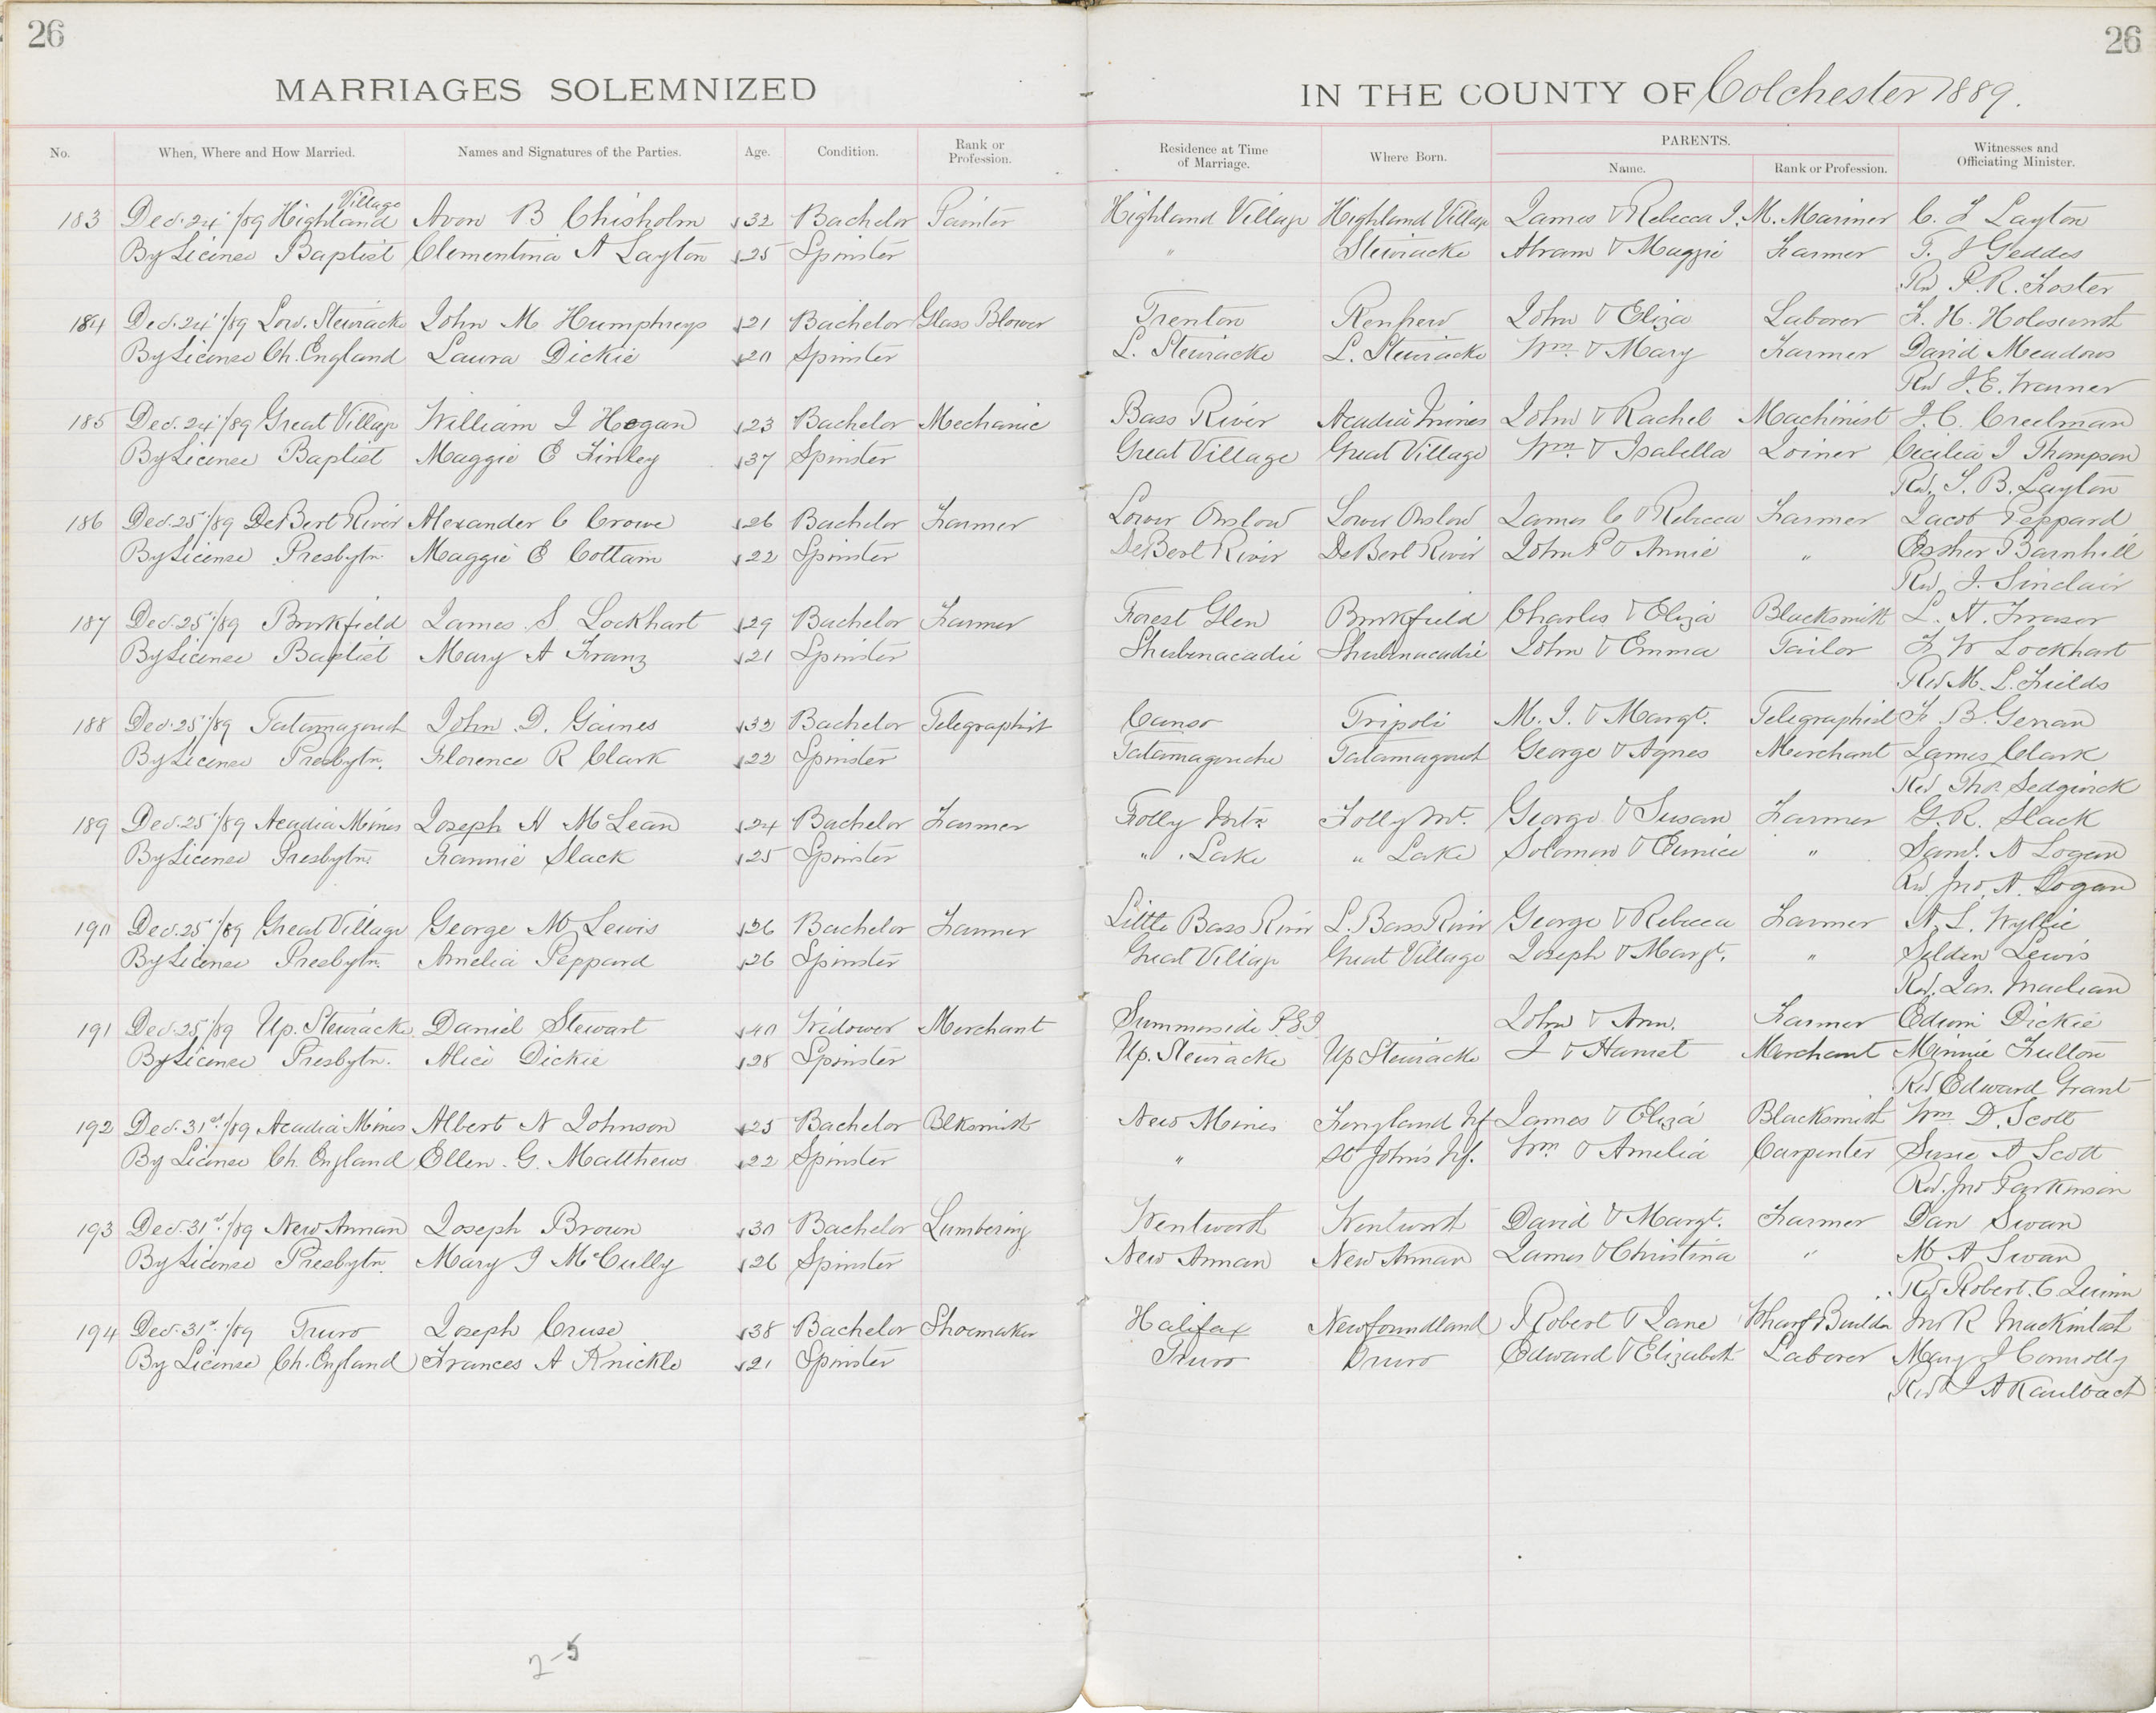 26
26
MARRIAGES SOLEMNIZED
IN THE COUNTY OF Colchester 1889.
No. When, Where and How Married. Names and Signatures of the Parties. Age. Condition. Rank or Profession. Residence at Time of Marriage. Where Born. PARENTS. Name. Rank or Profession. Witnesses and Officiating Minister.
Village
183 Dec. 24th/89 Highland Avon B Chisholm 32 Bachelor Painter Highland Village Highland Village James & Rebecca J. M. Mariner C. F Layton
By License Baptist Clementina A Layton 25 Spinster " Stewiacke Abram & Maggie Farmer T. J Geddes
Rev P. R. Foster
184 Dec. 24th/89 Low. Stewiacke John M Humphreys 21 Bachelor Glass Blower Trenton Renfrew John & Eliza Laborer F. H.
By License Ch. England Laura Dickie 20 Spinster L. Stewiacke L. Stewiacke Wm. & Mary Farmer David Meadows
Rev J. E. Warner
185 Dec. 24th/89 Great Village William J Hogan 23 Bachelor Mechanic Bass River Acadia Mines John & Rachel Machinist J. C. Creelman
By License Baptist Maggie E Finley 37 Spinster Great Village Great Village Wm. & Isabella Joiner Cicilia J Thompson
Rev. T. B. Layton
186 Dec. 25th/89 DeBert River Alexander C Crowe 26 Bachelor Farmer Lower Onslow Lower Onslow James C & Rebecca Farmer Jacob Peppard
By License Presbytn Maggie E Cottam 22 Spinster DeBert River DeBert River John P & Annie " Essher Barnhill
Rev. J. Sinclair
187 Dec. 25th/89 Brookfield James S. Lockhart 29 Bachelor Farmer Forest Glen Brookfield Charles & Eliza Blacksmith L. N. Fraser
By License Baptist Mary A Franz 21 Spinster Shubenacadie Shubenacadie John & Emma Tailor F W Lockhart
Rev M. L. Fields
188 Dec. 25th/89 Tatamagouch John D. Gaines 32 Bachelor Telegraphist Canso Tripoli M. J. & Margt. Telegraphist F. B.
By License Presbytn. Florence R Clark 22 Spinster Tatamagouche Tatamagouch George & Agnes Merchant James Clark
Rev Thos. Sedgwick
189 Dec. 25th/89 Acadia Mines Joseph H McLean 24 Bachelor Farmer Folly Mtn Folly Mt. George & Susan Farmer G. R. Slack
By License Presbytn. Fannie Slack 25 Spinster " Lake " Lake Solomon & Eunice " Saml. A Logan
Rev Jno A. Logan
190 Dec. 25th/89 Great Village George W Lewis 26 Bachelor Farmer Little Bass River L. Bass River George & Rebecca Farmer A. L. Wyllie
By License Presbytn. Amelia Peppard 26 Spinster Great Village Great Village Joseph & Margt. " Selden Lewis
Rev. Jas. Maclean
191 Dec. 25th/89 Up. Stewiacke Daniel Stewart 40 Widower Merchant Summerside P.E.I John & Ann. Farmer Edwin Dickie
By License Presbytn. Alice Dickie 28 Spinster Up. Stewiacke Up Stewiacke J & Harriet Merchant Minnie Fulton
Rev Edward Grant
192 Dec. 31st/89 Acadia Mines Albert N Johnson 25 Bachelor Blksmith New Mines Nf James & Eliza Blacksmith Wm D. Scott
By License Ch. England Ellen. G. Matthews 22 Spinster " St John's Nf. Wm & Amelia Carpenter Susie A Scott
Rev. Jno Parkinson
193 Dec. 31st/89 New Annan Joseph Brown 30 Bachelor Lumbering Wentworth Wentworth David & Margt. Farmer Dan Swan
By License Presbytn Mary J McCully 26 Spinster New Annan New Annan James & Christina " W A Swan
Rev Robert. C. Quinn
194 Dec. 31st/89 Truro Joseph Cruse 38 Bachelor Shoemaker Halifax Newfoundland Robert & Jane Wharf Builder Jno R Mackintosh
By License Ch. England Frances A Knickle 21 Spinster Truro Truro Edward & Elizabeth Laborer Mary J Connolly
Rev J A Kaulbach
2-5